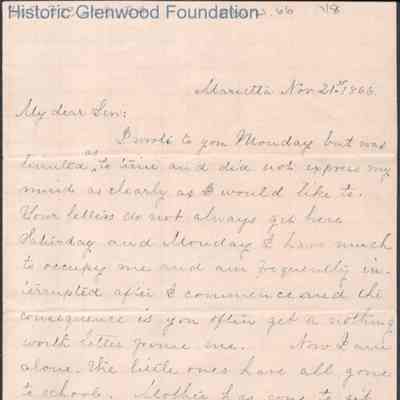 Historic Glenwood Foundation
1/8
Marietta Nov. 21st, 1866.
My dear Gen:
I wrote to you Monday but was
limited as to time and did not express my
mind as clearly as I would like to.
Your letters do not always get here
Saturday and Monday I have much
to occupy me and am frequently in-
terrupted after I commence and the
consequence is you often get a nothing
worth letter from me. Now I am
alone. The little ones have all gone
to school. Mother has gone to get